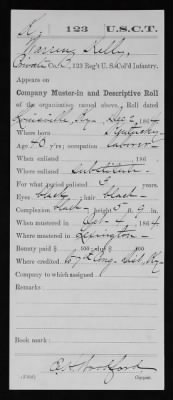 K. 123 U.S.C.T.
Warren Kelly,
Private, Co. , 123 Reg't U. S. Col'd Infantry.
Appears on
Company Muster-in and Descriptive Roll
of the organization named above. Roll dated
Louisville, Ky., 186 4
Where born Kentucky
Age 40 y'rs; occupation Laborer
When enlisted , 186
Where enlisted Substitute
For what period enlisted 3 years.
Eyes black, hair black
Complexion black, height 5 ft. 9 in.
When mustered in Oct 4, 186 4
Where mustered in Lexington
Bounty paid $ 100; due $ 100
Where credited Cong. Dist, Ky.
Company to which assigned
Remarks:
Book mark:
Copyist.